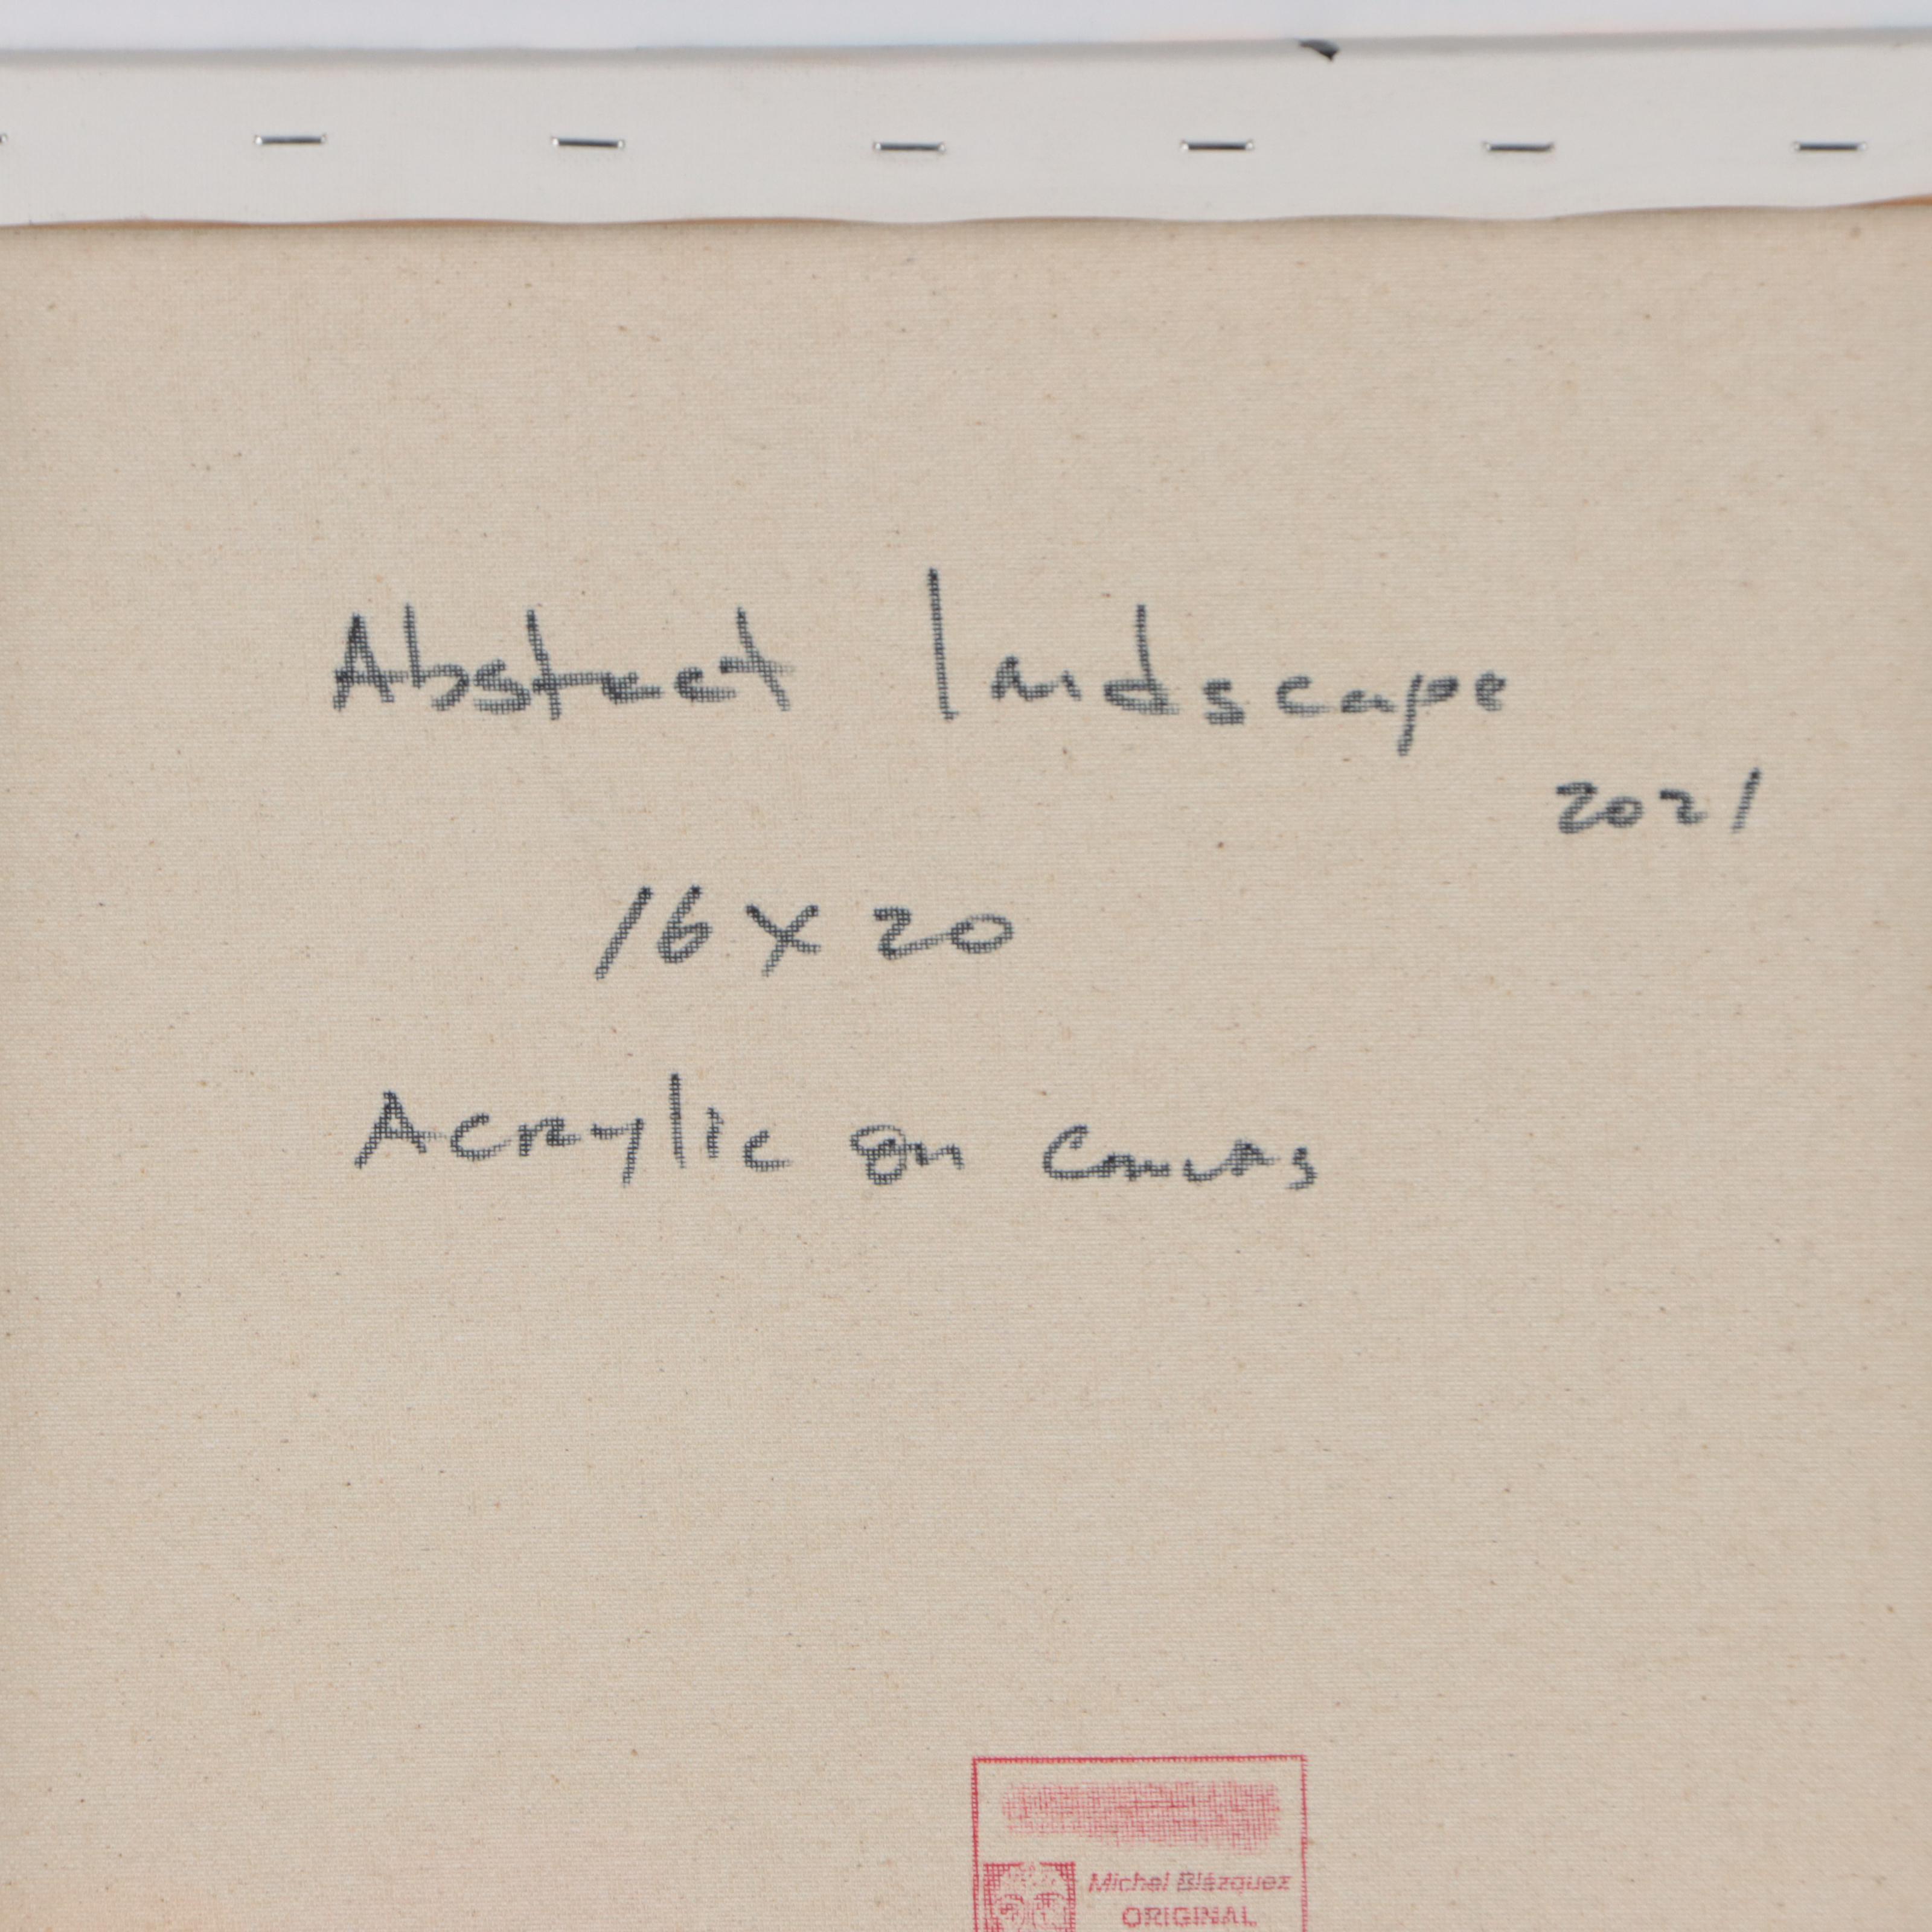 Abstract landscape
2021
16 x 20
Acrylic on canvas
Michel Blázquez
ORIGINAL